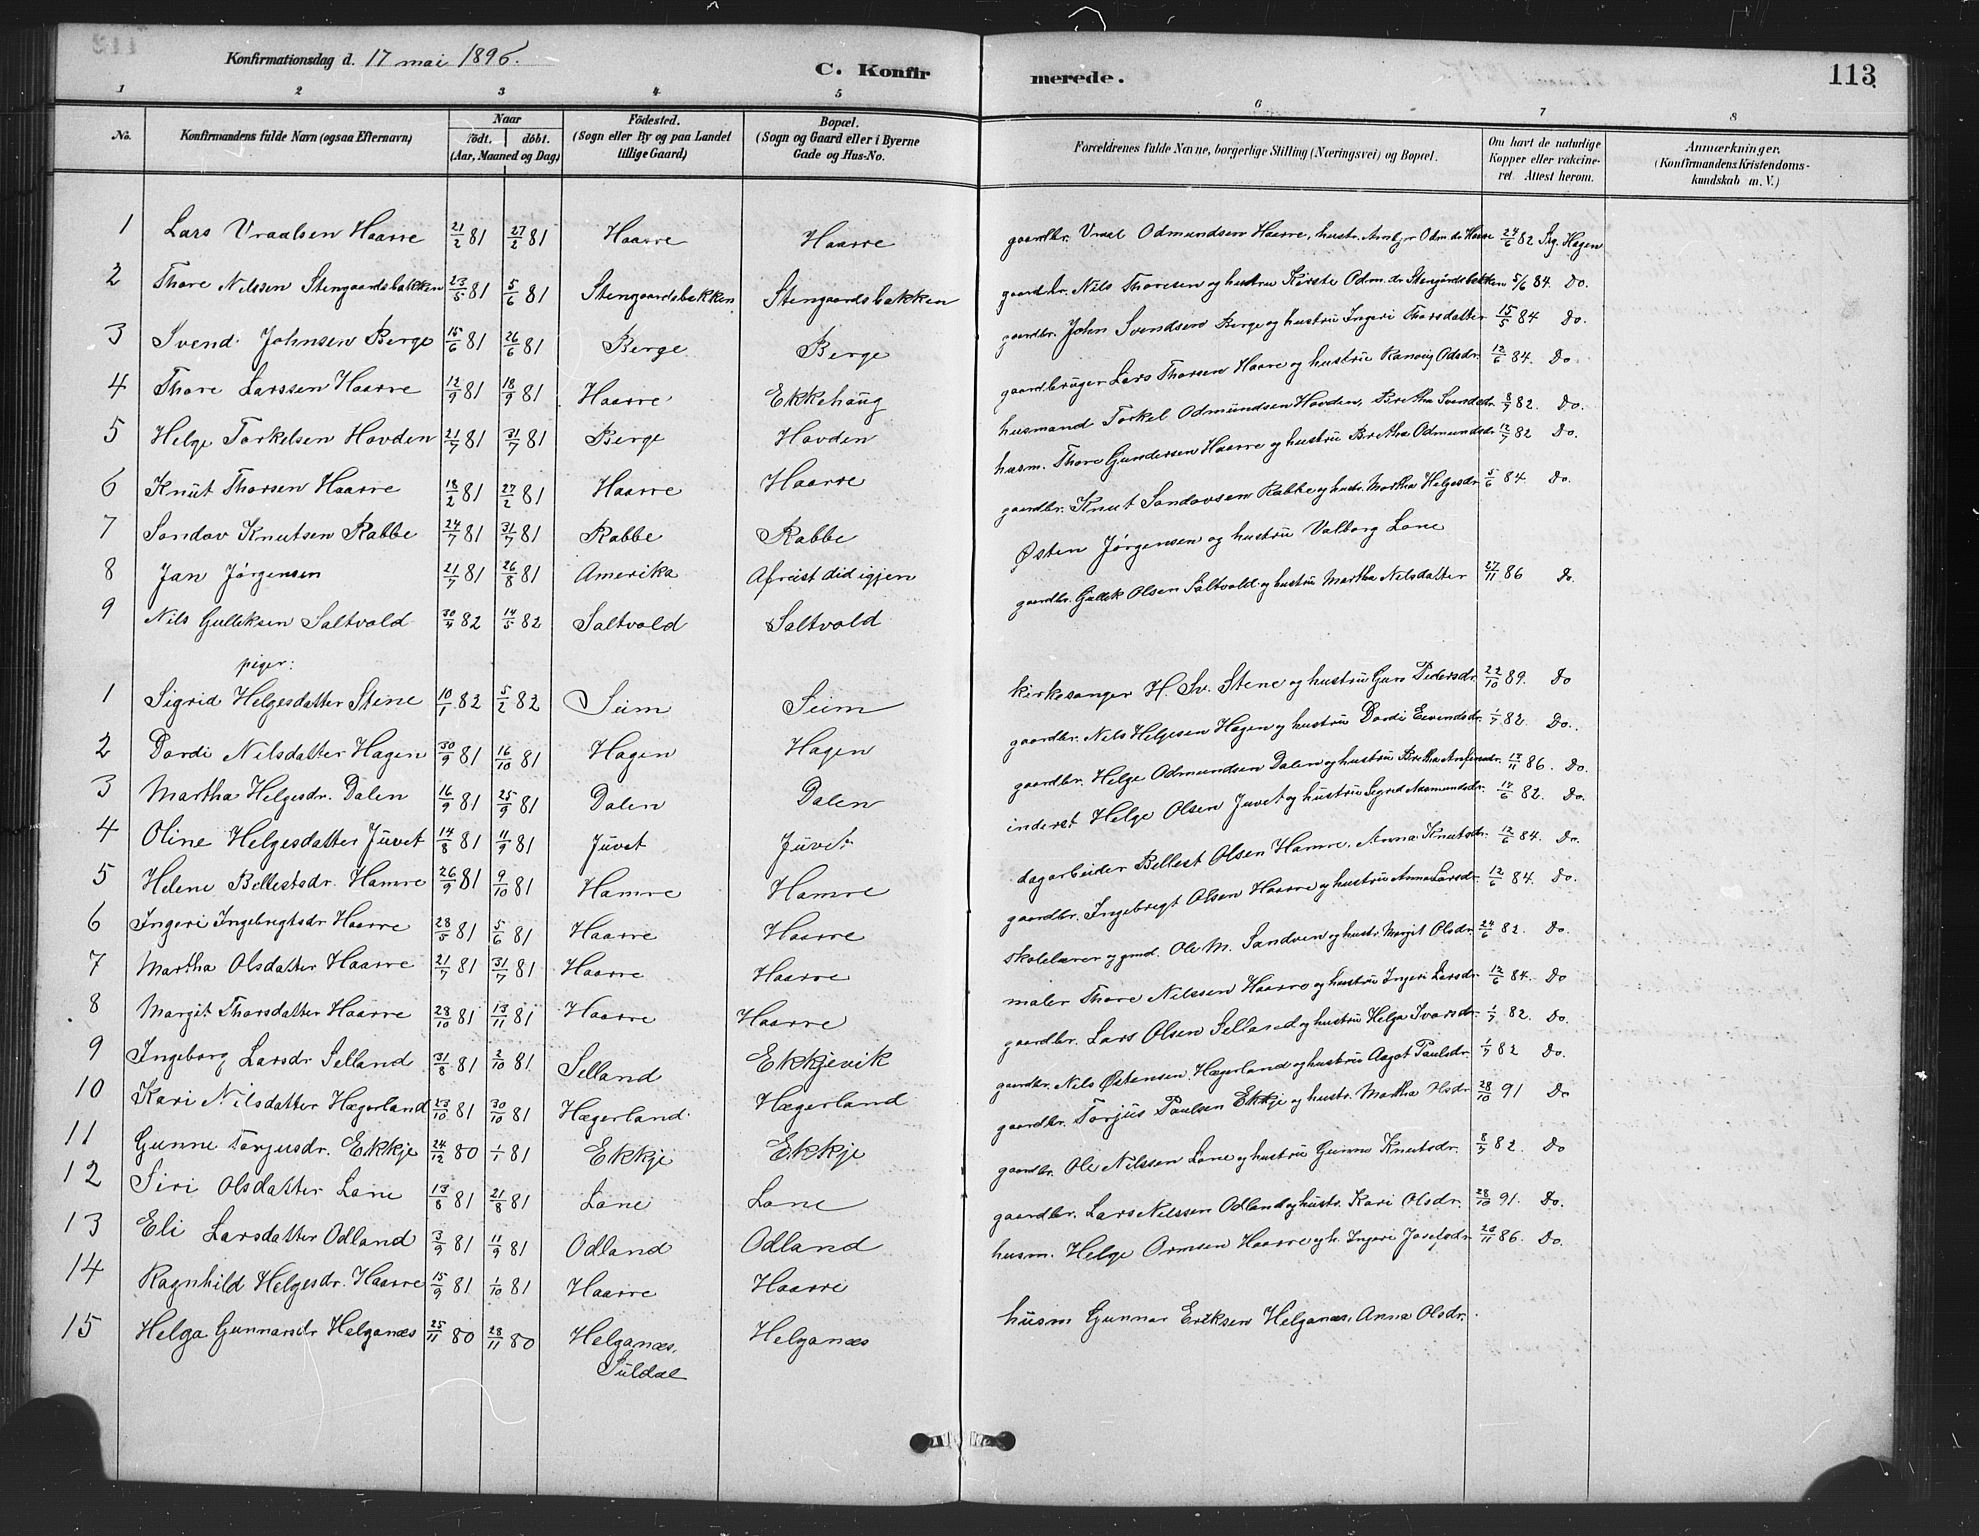 Konfirmationsdag d. 17 mai 1896.
C. Konfirmerede.
113
1 2 3 4 5 6 7 8
No.
Konfirmandens fulde Navn (ogsaa Efternavn)
Naar
födt. döbt.
(Aar, Maaned og Dag)
Födested.
(Sogn eller By og paa Landet
tillige Gaard)
Bopæl.
(Sogn og Gaard eller i Byerne
Gade og Hus-No.
Forældrenes fulde Navne, borgerlige Stilling (Næringsvei) og Bopæl.
Om havt de naturlige
Kopper eller vakcine-
ret. Attest herom.
Anmærkninger.
(Konfirmandens Kristendoms-
kundskab m. V.)
1 Lars Vraalsen Haarre 21/2 81 27/2 81 Haarre Haarre gaardbr. Vraal Odmundsen Haarre, hustr. Odm.dr Haarre 24/6 82 Sg. Hagen
2 Thore Nilssen Stengaardsbakken 23/5 81 5/6 81 Stengaardsbakken Stengaardsbakken gaardbr. Nils Thoresen og hustru Kirste Odm.dr Stengårdsbakken 5/6 84. Do.
3 Svend Johnsen Berge 15/6 81 26/6 81 Berge Berge gaardbr. John Svendsen Berge og hustru Ingeri Thorsdatter 15/5 84 Do.
4 Thore Larssen Haarre 12/9 81 18/9 81 Haarre Ekkehaug gaardbruger Lars Thorsen Haare og hustru Ranvig Odsdr. 12/6 84. Do.
5 Helge Torkelsen Hovden 21/7 81 31/7 81 Berge Hovden husmand Torkel Odmundsen Hovden, Bretha Svendsdr 8/7 82. Do.
6 Knut Thorsen Haarre 18/2 81 27/2 81 Haarre Haarre husm. Thore Gundersen Haarre og hustru Bretha Odmundsdr 12/7 82 Do.
7 Sondov Knutsen Rabbe 24/7 81 31/7 81 Rabbe Rabbe gaardbr. Knut Sondovsen Rabbe og hustr. Martha Helgesdr. 5/6 84. Do.
8 Jan Jørgensen 21/7 81 26/8 81 Amerika Afreist did igjen Østen Jørgensen og hustru Valborg Lone
9 Nils Gulleksen Saltvold 30/4 82 14/5 82 Saltvold Saltvold gaardbr. Gullek Olsen Saltvold og hustru Martha Nilsdatter 27/11 86 Do.
piger:
1 Sigrid Helgesdatter Stene 10/1 82 5/2 82 Seim Seim kirkesanger H. Sv. Stene og hustru Gun Pedersdr. 22/10 89. Do
2 Dordi Nilsdatter Hagen 30/9 81 16/10 81 Hagen Hagen gaardbr. Nils Helgesen Hagen og hustru Dordi Eivendsdr. 1/7 82. Do.
3 Martha Helgesdr. Dalen 16/9 81 25/9 81 Dalen Dalen gaardbr. Helge Odmundsen Dalen og hustru Bretha 13/11 86. Do.
4 Oline Helgesdatter Juvet 14/8 81 11/9 81 Juvet Juvet inderst Helge Olsen Juvet og hustru Sigrid Aasmundsdr. 82. Do.
5 Helene Bellestsdr. Hamre 26/9 81 9/10 81 Hamre Hamre dagarbeider Bellest Olsen Hamre, Anna Knutsdr. 12/6 84. Do.
6 Ingeri Ingebregtsdr Haarre 28/5 81 5/6 81 Haarre Haarre gaardbr. Ingebregt Olsen Haarre og hustru Anna Larsdr. 12/6 84. Do.
7 Martha Olsdatter Haarre 21/7 81 31/7 81 Haarre Haarre skolelærer og gmd. Ole M. Sandven og hustr. Margit Olsdr. 24/6 82. Do.
8 Margit Thorsdatter Haarre 28/10 81 13/11 81 Haarre Haarre maler Thore Nilssen Haarre og hustru Ingeri Larsdr. 12/6 84. Do
9 Ingeborg Larsdr Selland 31/8 81 2/10 81 Selland Ekkjevik gaardbr. Lars Olsen Selland og hustru Helga Ivarsdr. 1/7 82. Do.
10 Kari Nilsdatter Hægerland 23/10 81 30/10 81 Hægerland Hægerland gaardbr. Nils Østensen Hægerland og hustru Aagot Paulsdr. 1/7 82 Do.
11 Gunne Torjusdr. Ekkje 24/12 80 1/1 81 Ekkje Ekkje gaardbr. Torjus Paulsen Ekkje og hustr. Martha Olsdr 28/10 91 Do
12 Siri Olsdatter Lone 13/8 81 21/8 81 Lone Lone gaardbr. Ole Nilssen Lone og hustru Gunne Knutsdr. 8/7 82. Do
13 Eli Larsdatter Odland 3/9 81 11/9 81 Odland Odland gaardbr. Lars Nilssen Odland og hustr. Kari Olsdr. 28/10 91. Do.
14 Ragnhild Helgesdr. Haarre 15/9 81 1/10 81 Haarre Haarre husm. Helge Ormsen Haarre og h. Ingeri Josefsdr 86. Do.
15 Helga Gunnarsdr Helganæs 25/11 80 28/11 80 Helganæs, Helganæs husm Gunnar Eriksen Helganæs, Anna Olsdr.
Suldal